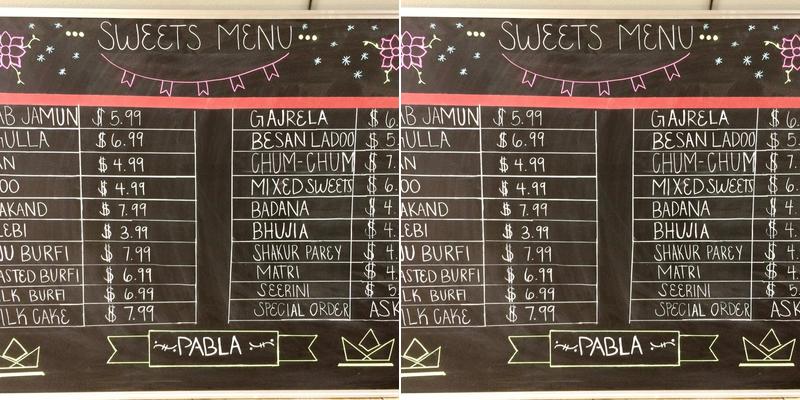 SWEETS MENU
AB JAMUN $5.99 GAJRELA $6.
ULLA $6.99 BESAN LADOO $5.
AN $4.99 CHUM-CHUM $7.
OO $4.99 MIXED SWEETS $6.
AKAND $7.99 BADANA $4.
EBI $3.99 BHUJIA $4.
JU BURFI $7.99 SHAKUR PAREY $4.
ASTED BURFI $6.99 MATRI $4.
LK BURFI $6.99 SEERINI $5.
ILK CAKE $7.99 SPECIAL ORDER ASK
PABLA
SWEETS MENU
AB JAMUN $5.99 GAJRELA $6.
ULLA $6.99 BESAN LADOO $5.
AN $4.99 CHUM-CHUM $7.
OO $4.99 MIXED SWEETS $6.
AKAND $7.99 BADANA $4.
EBI $3.99 BHUJIA $4.
JU BURFI $7.99 SHAKUR PAREY $4.
ASTED BURFI $6.99 MATRI $4.
LK BURFI $6.99 SEERINI $5.
ILK CAKE $7.99 SPECIAL ORDER ASK
PABLA